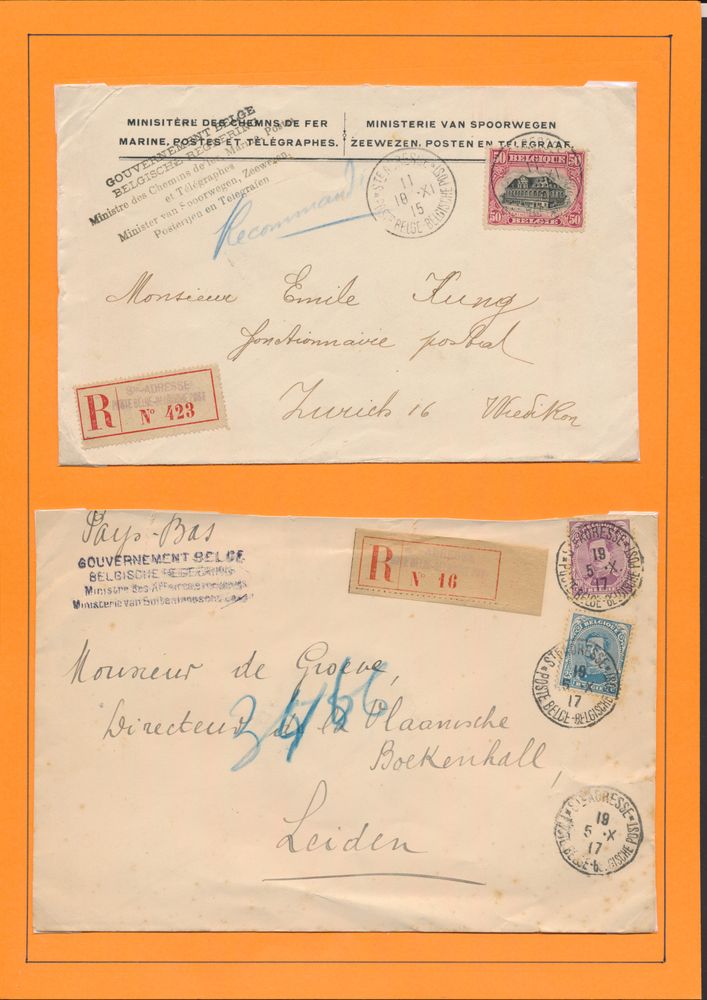 MINISITÈRE DES CHEMNS DE FER
MARINE, POSTES ET TÉLÉGRAPHES.
MINISTERIE VAN SPOORWEGEN
ZEEWEZEN, POSTEN EN TELEGRAAF.
GOUVERNEMENT BELGE
BELGISCHE REGEERING
Ministre des Chemins de fer, Marine, Postes
et Télégraphes
Minister van Spoorwegen, Zeewezen,
Posterijen en Telegrafen
Recommandé
STE ADRESSE
11
18 · XI
15
POSTE BELGE-BELGISCHE POST
50 BELGIQUE 50
50 BELGIE 50
Monsieur Emile Kung
fonctionnaire postal
Zurich 16 Wiedikon
STE-ADRESSE
POSTE BELGE-BELGISCHE POST
R
N° 423
Pays-Bas
GOUVERNEMENT BELGE
BELGISCHE REGEERING
Ministre des Affaires
Ministerie van Buitenlandsche
R
N° 16
STE ADRESSE
19
5 · X
17
POSTE BELGE-BELGISCHE POST
BELGIQUE
STE ADRESSE
19
5 · X
17
POSTE BELGE-BELGISCHE POST
Monsieur de Groeve,
Directeur de la Vlaamsche
Boekenhall,
Leiden
STE ADRESSE
19
5 · X
17
POSTE BELGE-BELGISCHE POST